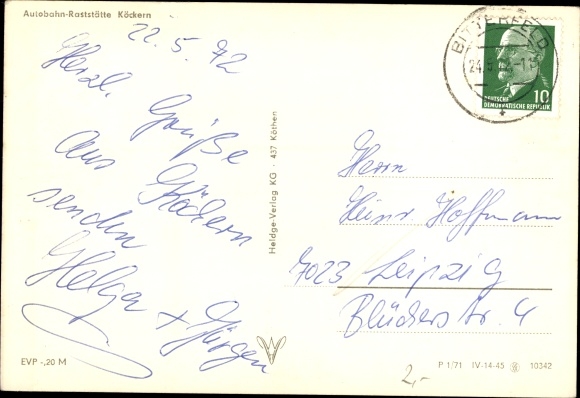 Autobahn-Raststätte Köckern
22.5.72
Herzl. Grüße
aus Köckern
senden
Helga + Jürgen
EVP -,20 M
Heldge-Verlag KG · 437 Köthen
BITTERFELD
24.5
10
DEUTSCHE
DEMOKRATISCHE REPUBLIK
Herrn
Heinr Hoffmann
7023 Leipzig
Blücherstr. 4
P 1/71 IV-14-45 10342
2,-